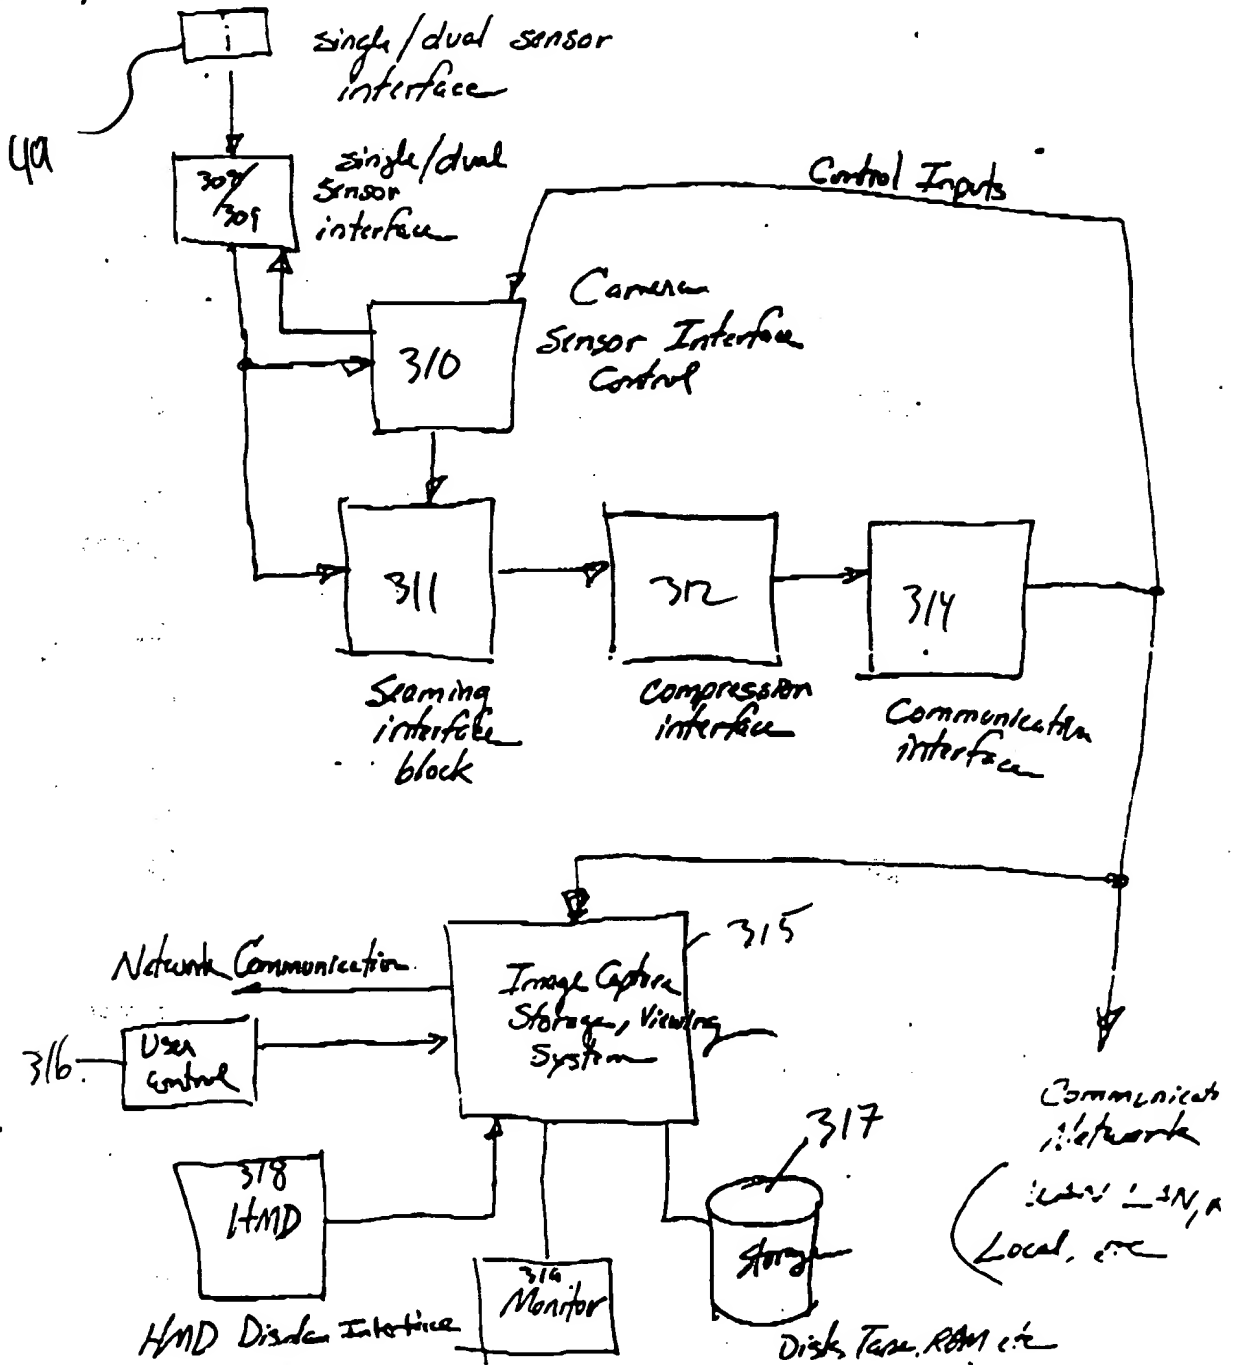 single/dual sensor
interface
49
308/
309
single/dual
sensor
interface
Control Inputs
310
Camera
Sensor Interface
Control
311
312
314
Seaming
interface
block
compression
interface
Communication
interface
315
Network Communication
Image Capture
Storage, Viewing
System
316
User
control
317
318
HMD
HMD Display Interface
Monitor
Storage
Disk, Tape, RAM etc
Network
Local, etc